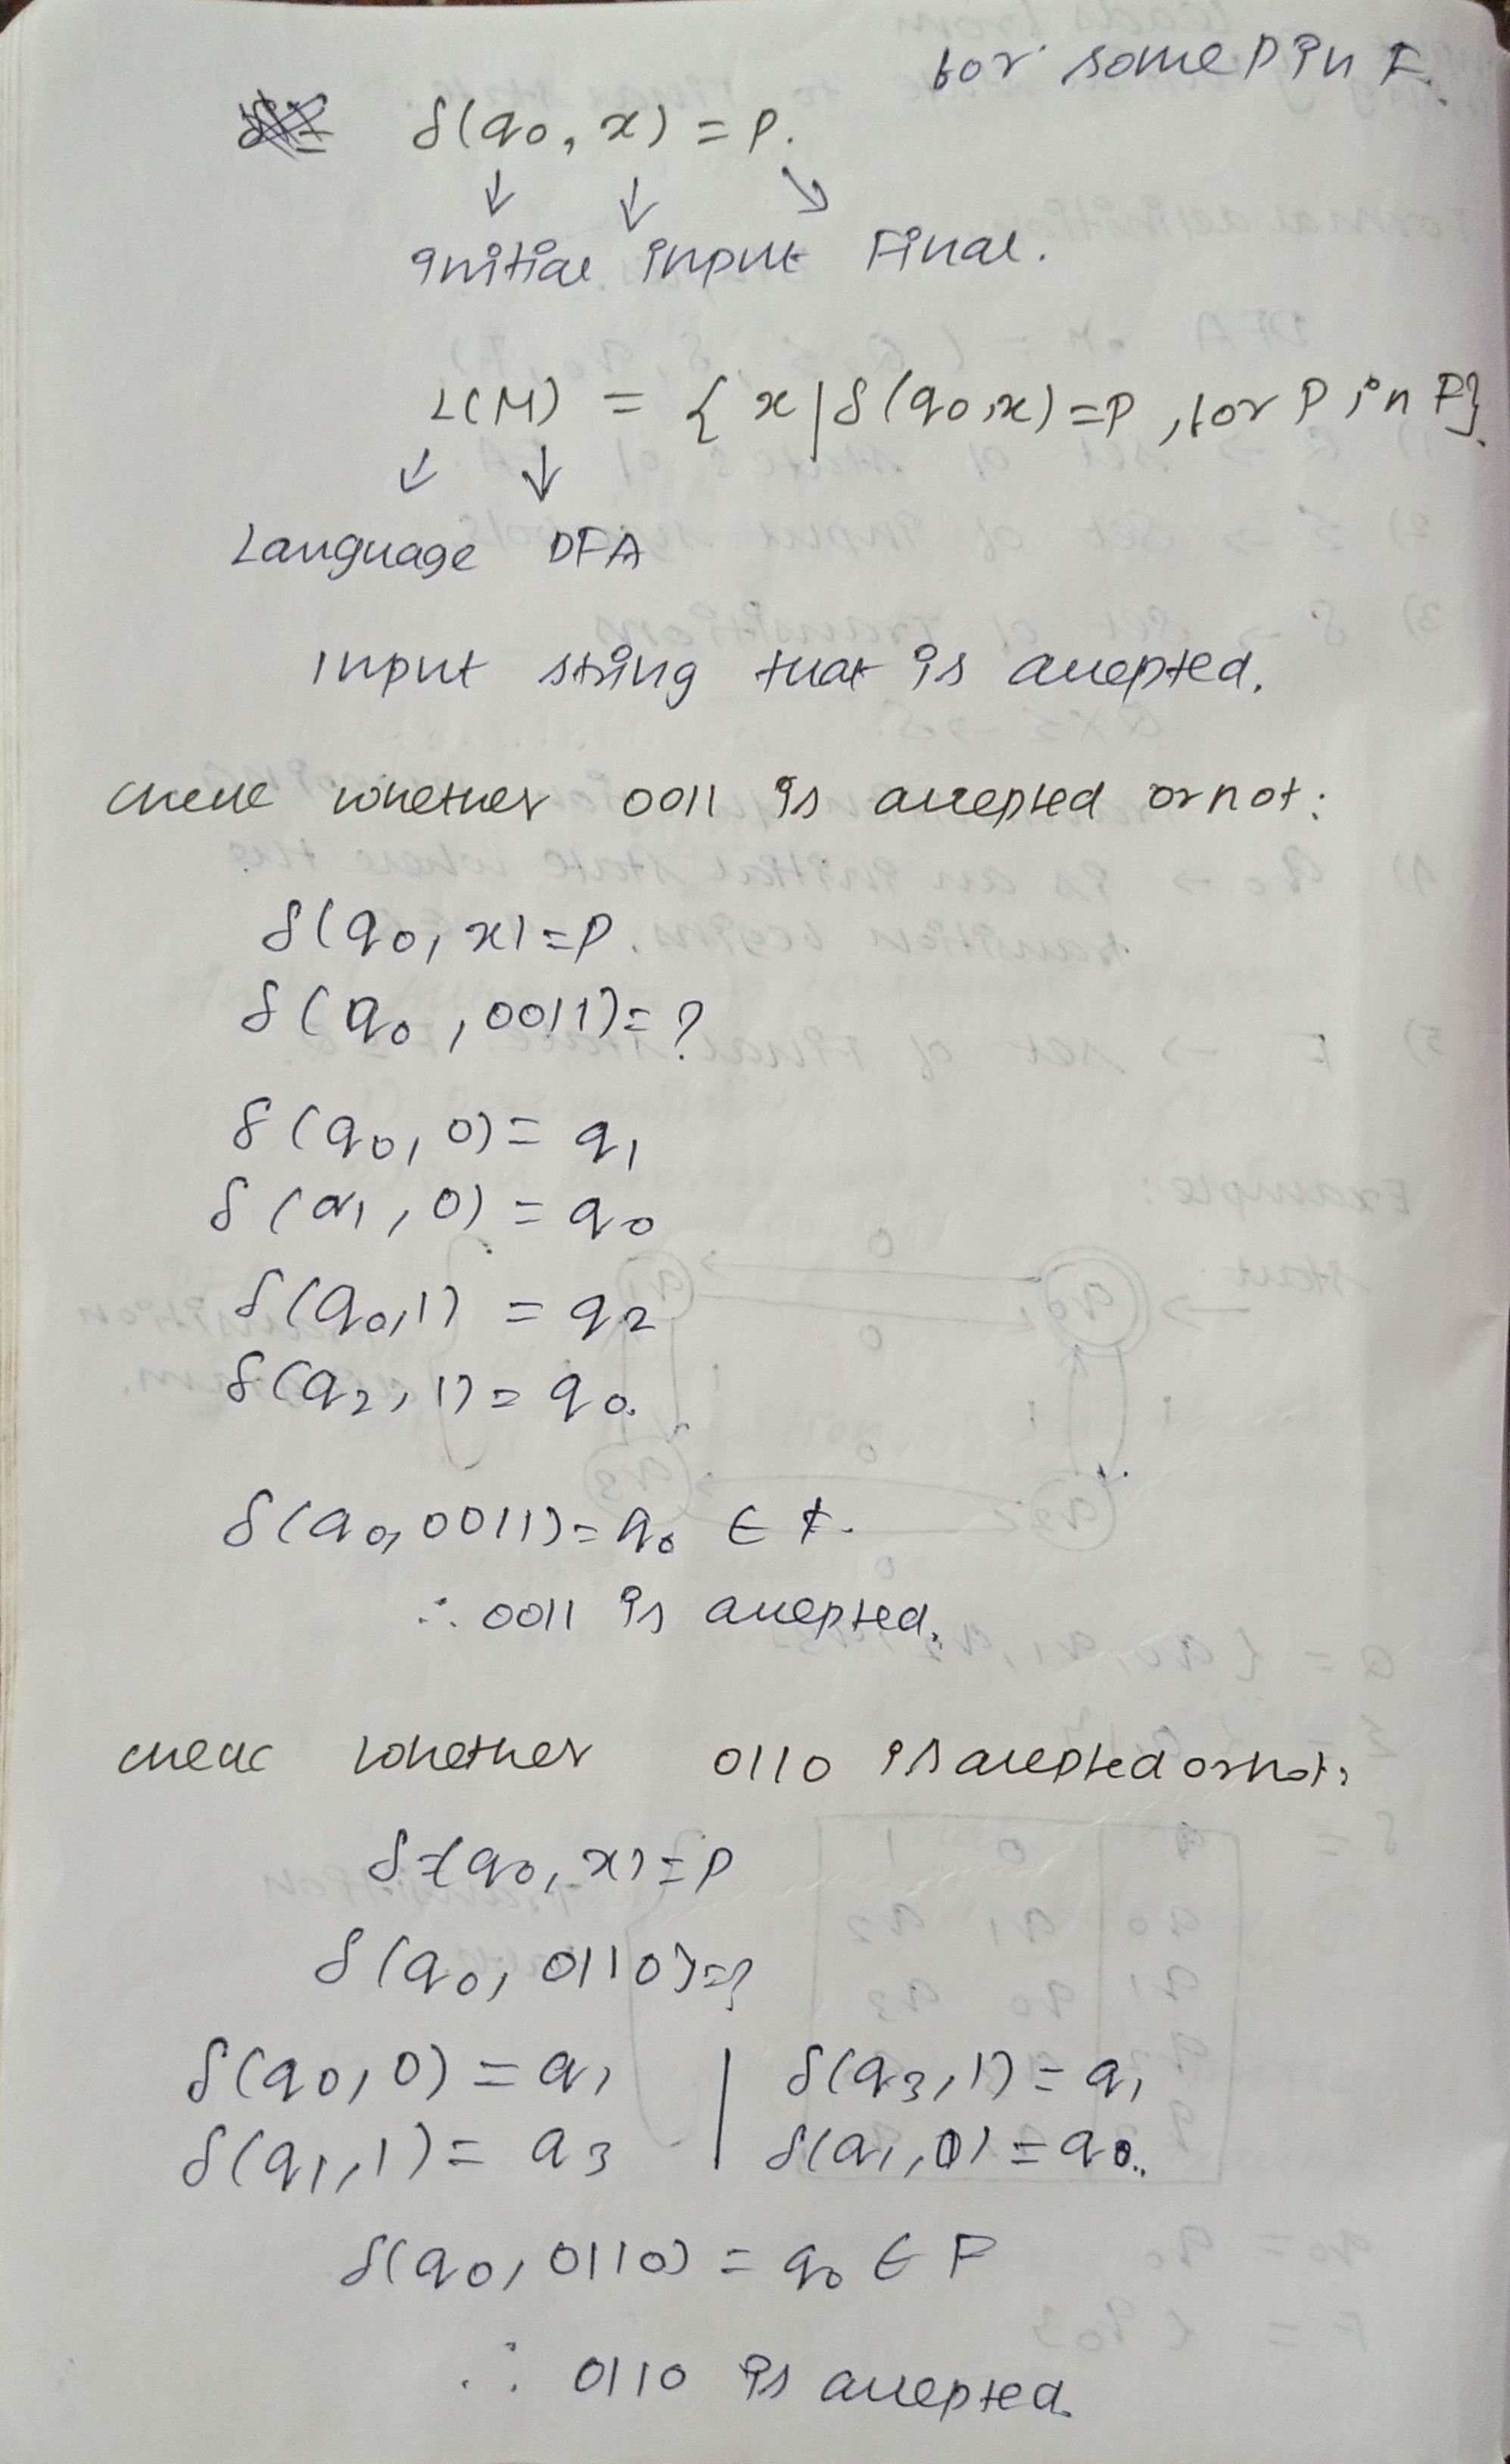 for some P in F.
δ(q0, x) = P.
↓ ↓ ↘
initial input Final.
L(M) = { x | δ(q0, x) = P, for P in F}.
↓ ↓
Language DFA
Input string that is accepted.
check whether 0011 is accepted or not:
δ(q0, x) = P.
δ(q0, 0011) = ?
δ(q0, 0) = q1
δ(q1, 0) = q0
δ(q0, 1) = q2
δ(q2, 1) = q0.
δ(q0, 0011) = q0 ∈ F.
∴ 0011 is accepted.
check whether 0110 is accepted or not:
δ(q0, x) = P
δ(q0, 0110) = ?
δ(q0, 0) = q1 | δ(q3, 1) = q1
δ(q1, 1) = q3 | δ(q1, 0) = q0.
δ(q0, 0110) = q0 ∈ F
∴ 0110 is accepted.